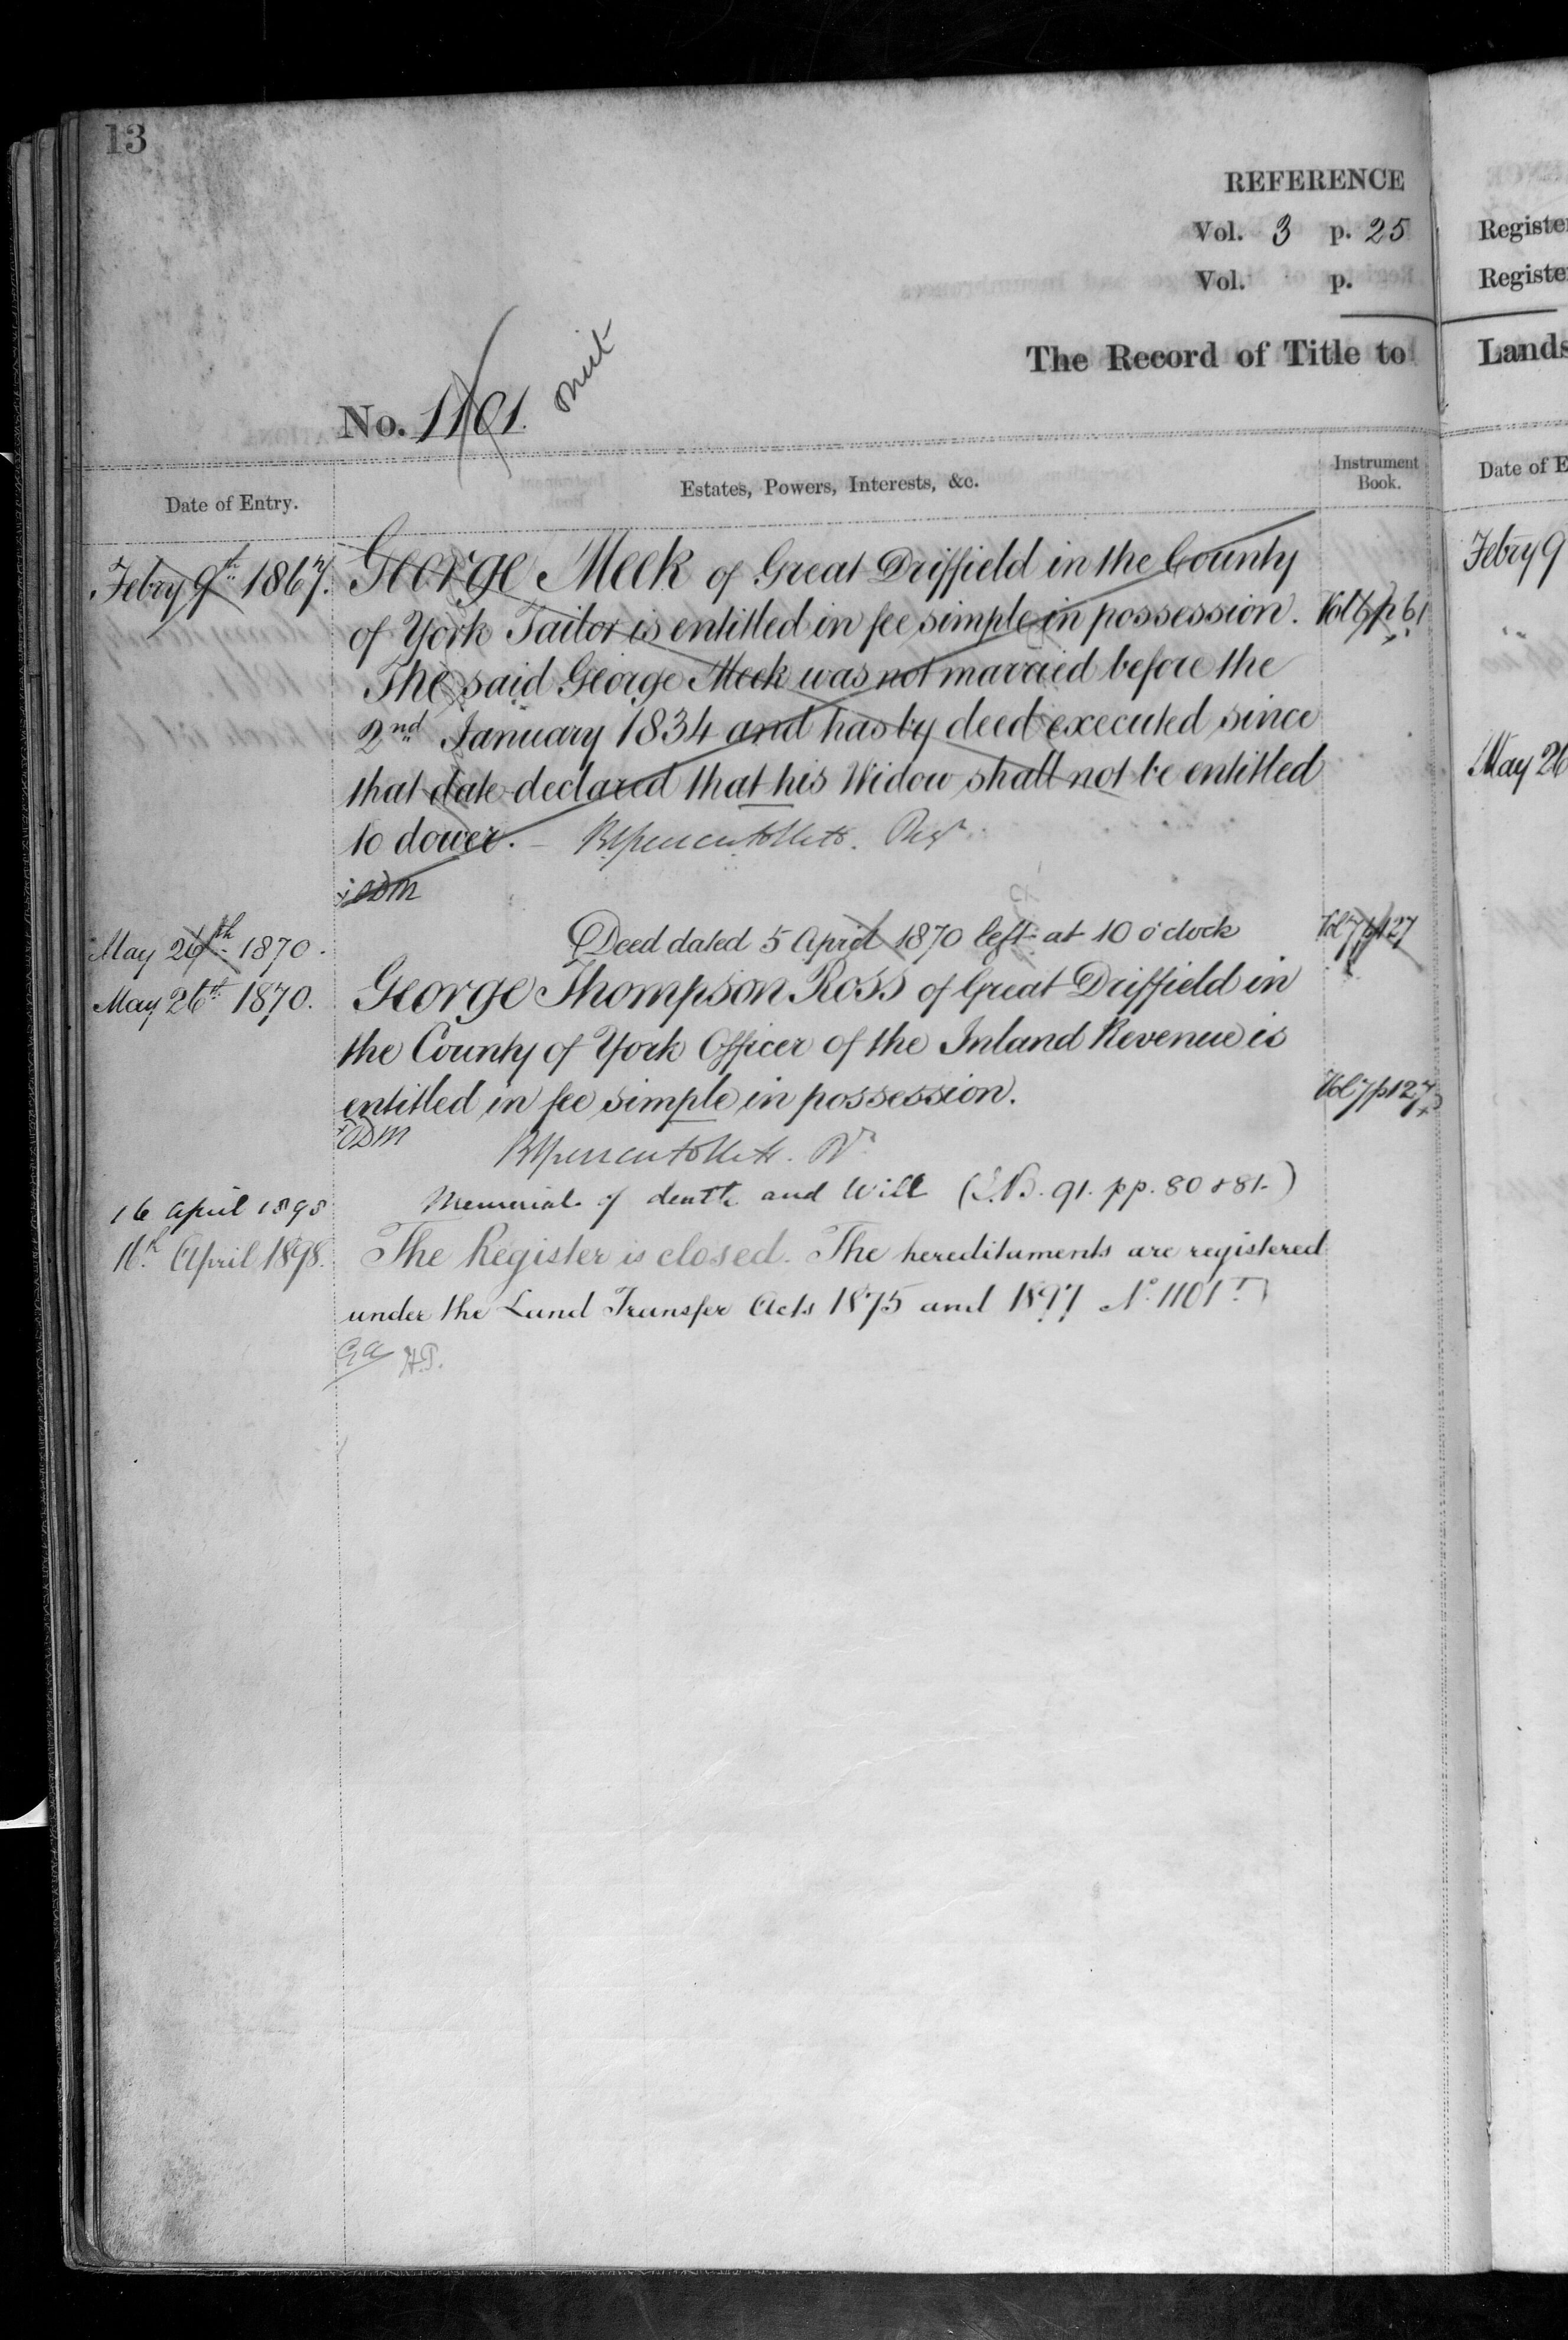 13
REFERENCE
Vol. 3 p. 25
Vol. p.
The Record of Title to
No. 1101. omit
Date of Entry. Estates, Powers, Interests, &c. Instrument Book.
Febry 9th 1867. George Meek of Great Driffield in the County
of York Tailor is entitled in fee simple in possession. Vol 6 p 61
The said George Meek was not married before the
2nd January 1834 and has by deed executed since
that date declared that his Widow shall not be entitled
to dower. –
May 26th 1870. Deed dated 5 April 1870 left at 10 o'clock Vol 7 p 127
May 26th 1870. George Thompson Ross of Great Driffield in
the County of York Officer of the Inland Revenue is
entitled in fee simple in possession. Vol 7 p 127
16 April 1898 Memorial of death and Will (I.B. 91. pp. 80 & 81.)
16th April 1898. The Register is closed. The hereditaments are registered
under the Land Transfer Acts 1875 and 1897 No. 1101
H.P.
Registe
Registe
Lands
Date of E
Febry 9
May 26